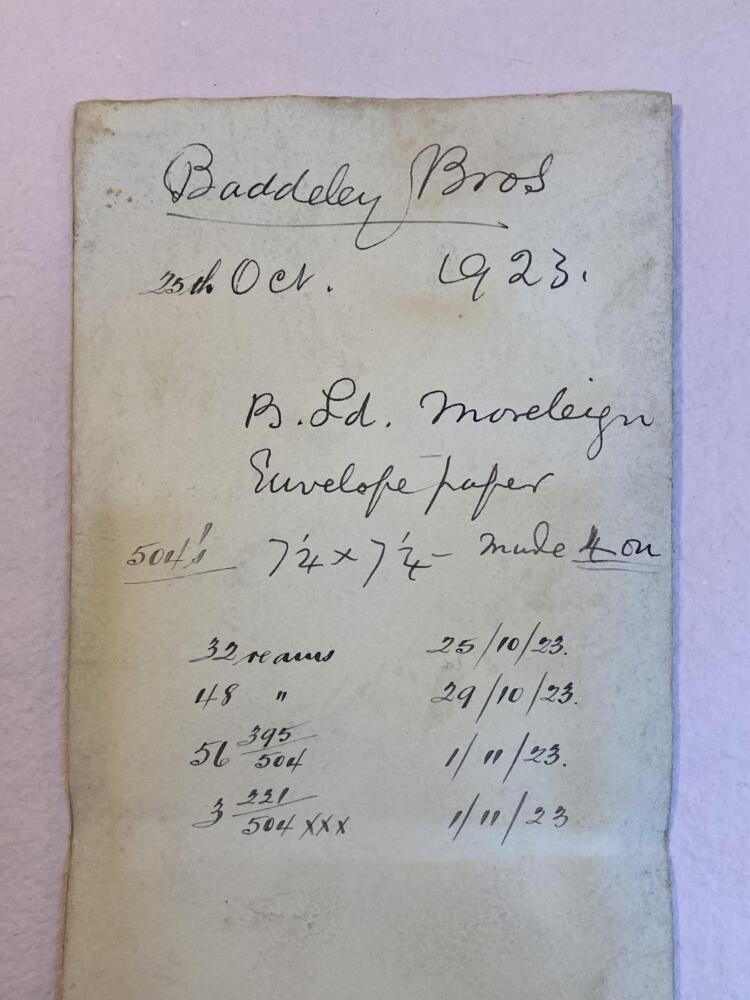 Baddeley Bros
25th Oct. 1923.
B. Ld. Moreleign
Envelope paper
504's 7¼ x 7¼ - Made 4 on
32 reams 25/10/23.
48 " 29/10/23.
56 395/504 1/11/23.
3 221/504 XXX 1/11/23